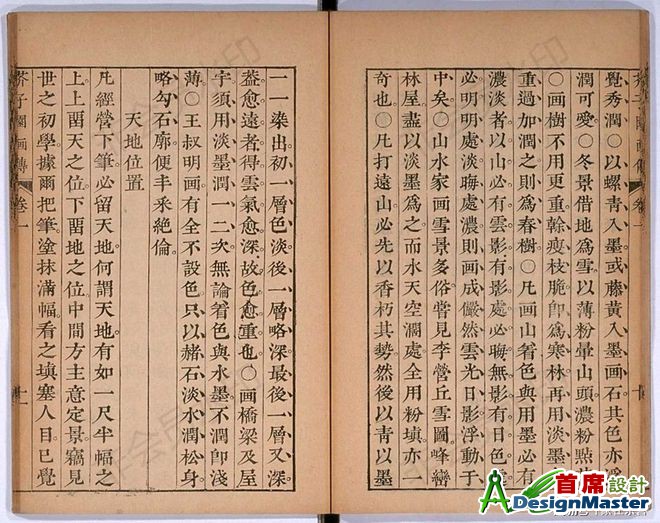 覺秀潤○以螺青入墨或藤黃入墨画石其色亦浮
潤可愛○冬景借地爲雪以薄粉暈山頭濃粉點
○画樹不用更重幹瘦枝脆卽爲寒林再用淡墨
重過加潤之則爲春樹○凡画山着色與用墨必有
濃淡者以山必有雲影有影處必晦無影有日色
必明明處淡晦處濃則画成儼然雲光日影浮動于
中矣○山水家画雪景多俗嘗見李營丘雪圖峰巒
林屋盡以淡墨爲之而水天空濶處全用粉塡亦一
奇也○凡打遠山必先以香朽其勢然後以青以墨
一一染出初一層色淡後一層略深最後一層又深
葢愈遠者得雲氣愈深故色愈重也○画橋梁及屋
宇須用淡墨潤一二次無論着色與水墨不潤卽淺
薄○王叔明画有全不設色只以赭石淡水潤松身
略勾石廓便丰采絶倫
天地位置
凡經營下筆必留天地何謂天地有如一尺半幅之
上上畱天之位下畱地之位中間方主意定景竊見
世之初學據爾把筆塗抹滿幅看之塡塞人目已覺
芥子園画傳 卷一 十一
首席設計
ADesignMaster